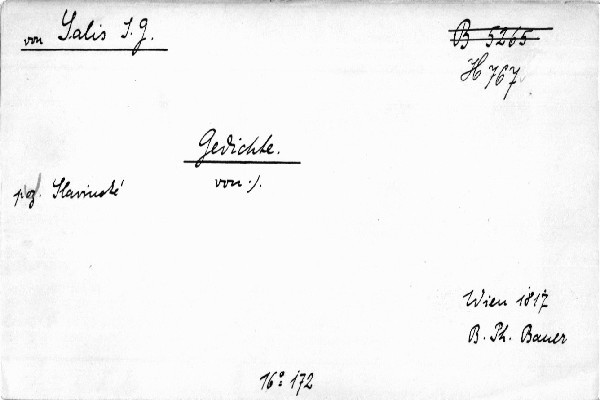 von Salis J. G.
B 5265
H 767
Gedichte.
von ·/.
poz. Slavinské
Wien 1817
B. Ph. Bauer
16° 172